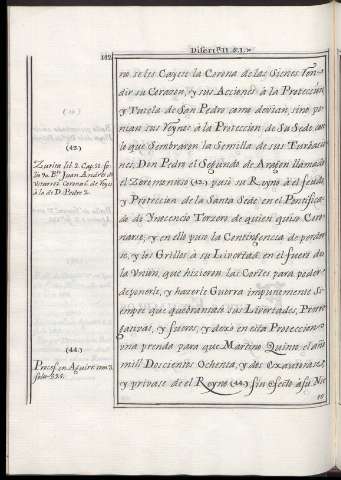 182
Disert.n II. §. I.
no se les Cayese la Corona de las Sienes, fun-
dir su Corazon, y sus Acciones à la Proteccion
y Tutela de San Pedro como devian, sino po-
nian sus Reynos à la Proteccion, de Su Sede con
lo que Sembraron la Semilla de sus Turbacio-
nes; Don Pedro el Segundo de Aragon llamado
el Zeremonioso (43.) puso su Reyno à el feudo
y Proteccion de la Santa Sede en el Pontifica-
do de Ynocencio Terzero de quien quiso Coro-
narse, y en ello puso la Contingencia de perder-
se, y los Grillos à su Livertad en el fuero de
la Union, que hicieron las Cortes para poder
deponerle, y hacerle Guerra impunemente Si-
empre que quebrantase sus Livertades, Prerro-
gativas, y fueros, y dexò en esta Proteccion
una prenda para que Martino Quinto el año
mill Doscientos Ochenta, y dos exautorase,
y privase de el Reyno (44.) sin efecto à su Nie-
to
(43.)
Zurita lib. 2. Cap. 51. fo-
lio 90. B.to Juan Andres de
Ustarroz Coronac.n de Reyes
à la de D. Pedro 2.
(44.)
Proces.o en Aguirr. tom. 3.
folio 534.